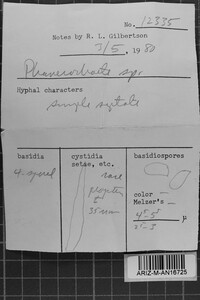 No. 12335
Notes by R. L. Gilbertson
3/5, 1980
Phanerochaete sp.
Hyphal characters
simple septate
basidia
cystidia
setae, etc.
basidiospores
4-spored
rare
35
color -
Melzer's -
4-5
µ
-3
ARIZ-M-AN16725